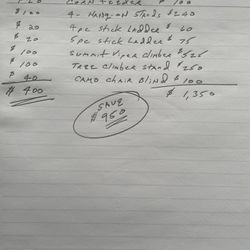 $ 20 CORN FEEDER $ 100
$ 100 4- HANG ON STANDS $ 240
$ 20 4 pc STICK LADDER $ 60
$ 20 5 pc STICK LADDER $ 75
$ 100 SUMMIT VIPER CLIMBER $ 525
$ 100 TREE CLIMBER STAND $ 250
$ 40 CAMO CHAIR BLIND $ 100
$ 400 $ 1,350
SAVE
$ 950